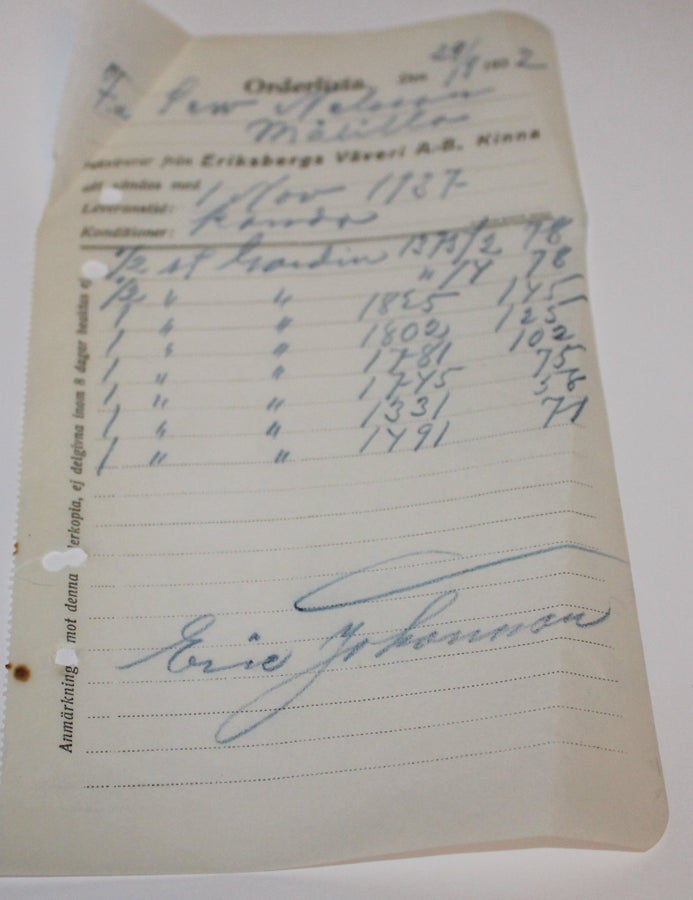 Orderlista Den 29/9 193 2
F:a Nelsson
Målilla
från Eriksbergs Väveri A.-B. Kinna
att sändas med
Leveranstid: 1 Nov 1937
Konditioner: kända
1/2 st Gardin 1373/2 78
1/2 " " " /4 78
1 " " 1825 145
1 " " 1802 125
1 " " 1781 102
1 " " 1745 75
1 " " 1331 58
1 " " 1491 71
Eric Johannson
Anmärkning mot denna orderkopia, ej delgivna inom 8 dagar beaktas ej